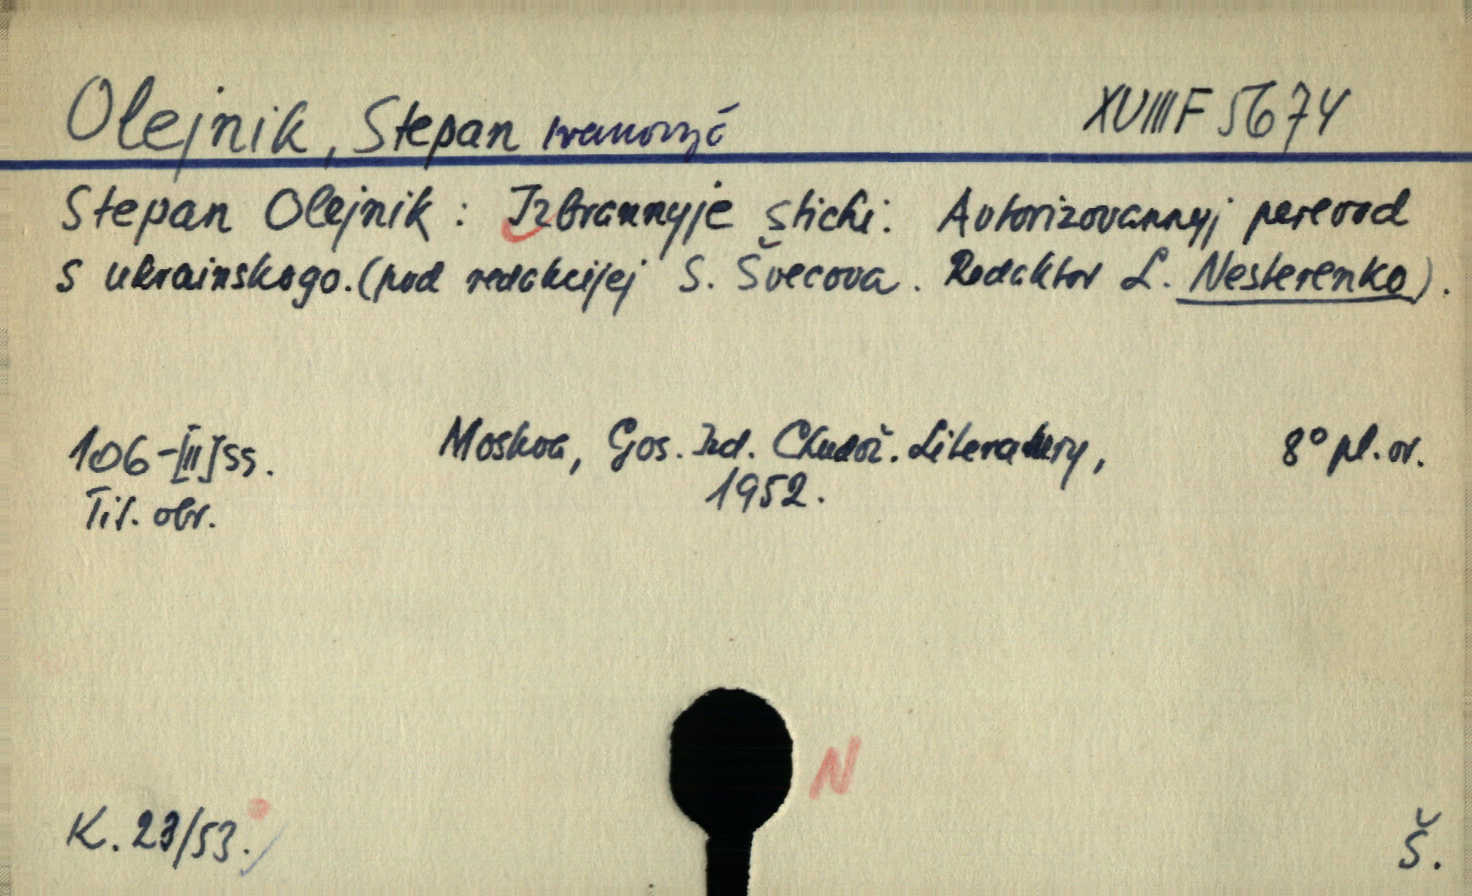 Olejnik, Stepan Ivanovyč XVIII F 5674
Stepan Olejnik: Izbrannyje stichi. Avtorizovannyj perevod
s ukrainskogo. (pod redakcijej S. Švecova. Redaktor L. Nesterenko).
106-[III] ss. Moskva, Gos. Izd. Chudož. Literatury, 8° pl. or.
1952.
Tit. obr.
N
K. 23/53. Š.